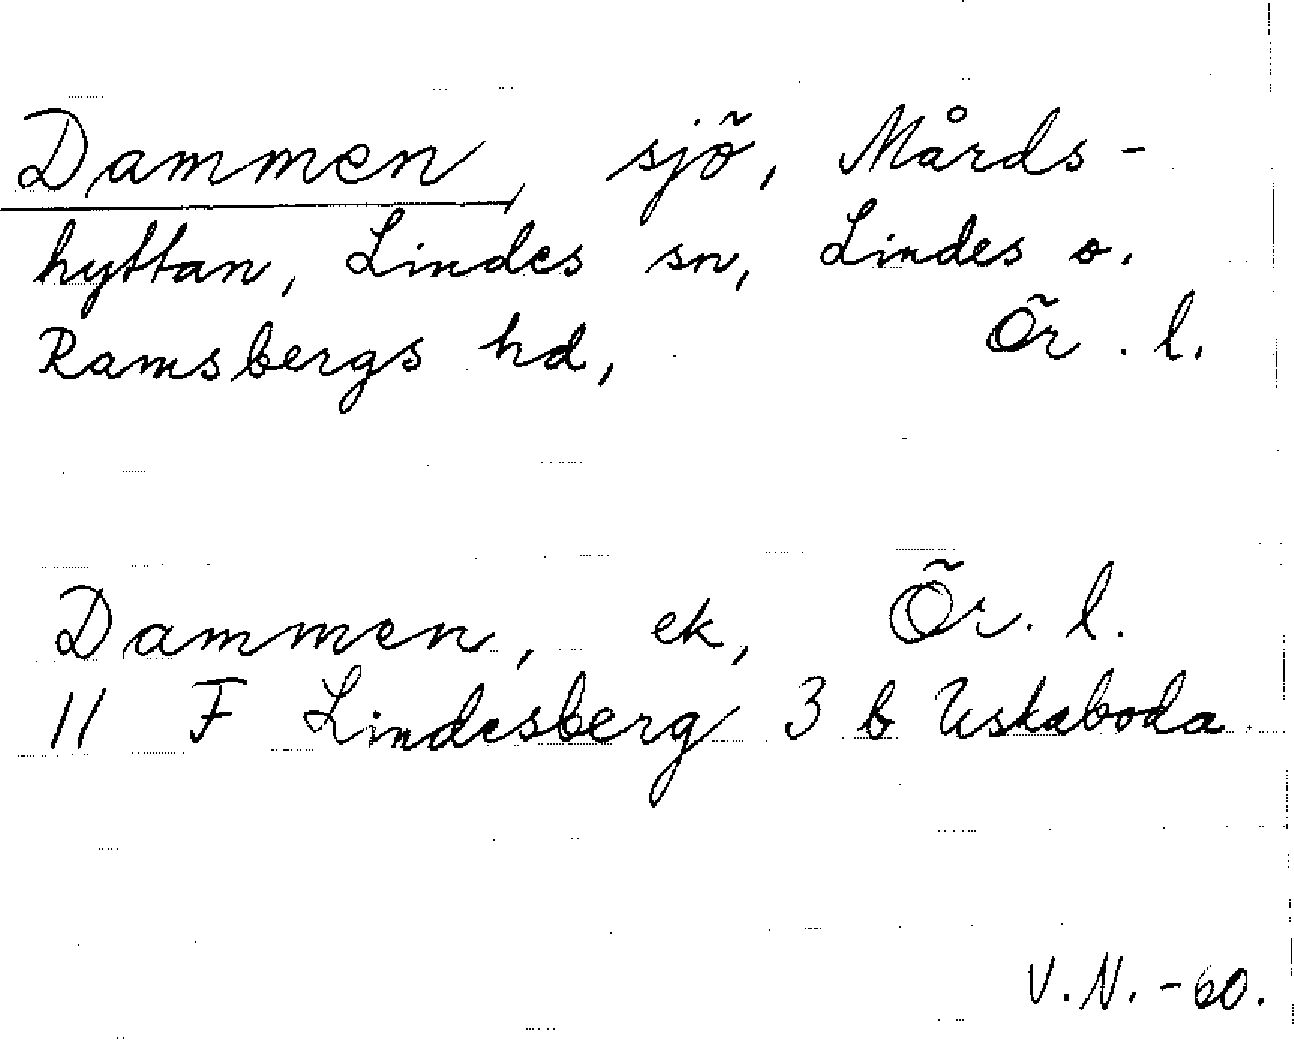 Dammen, sjö, Mårds-
hyttan, Lindes sn, Lindes o.
Ramsbergs hd, Ör. l.
Dammen, ek, Ör. l.
11 F Lindesberg 3 b Uskaboda
V.N. -60.